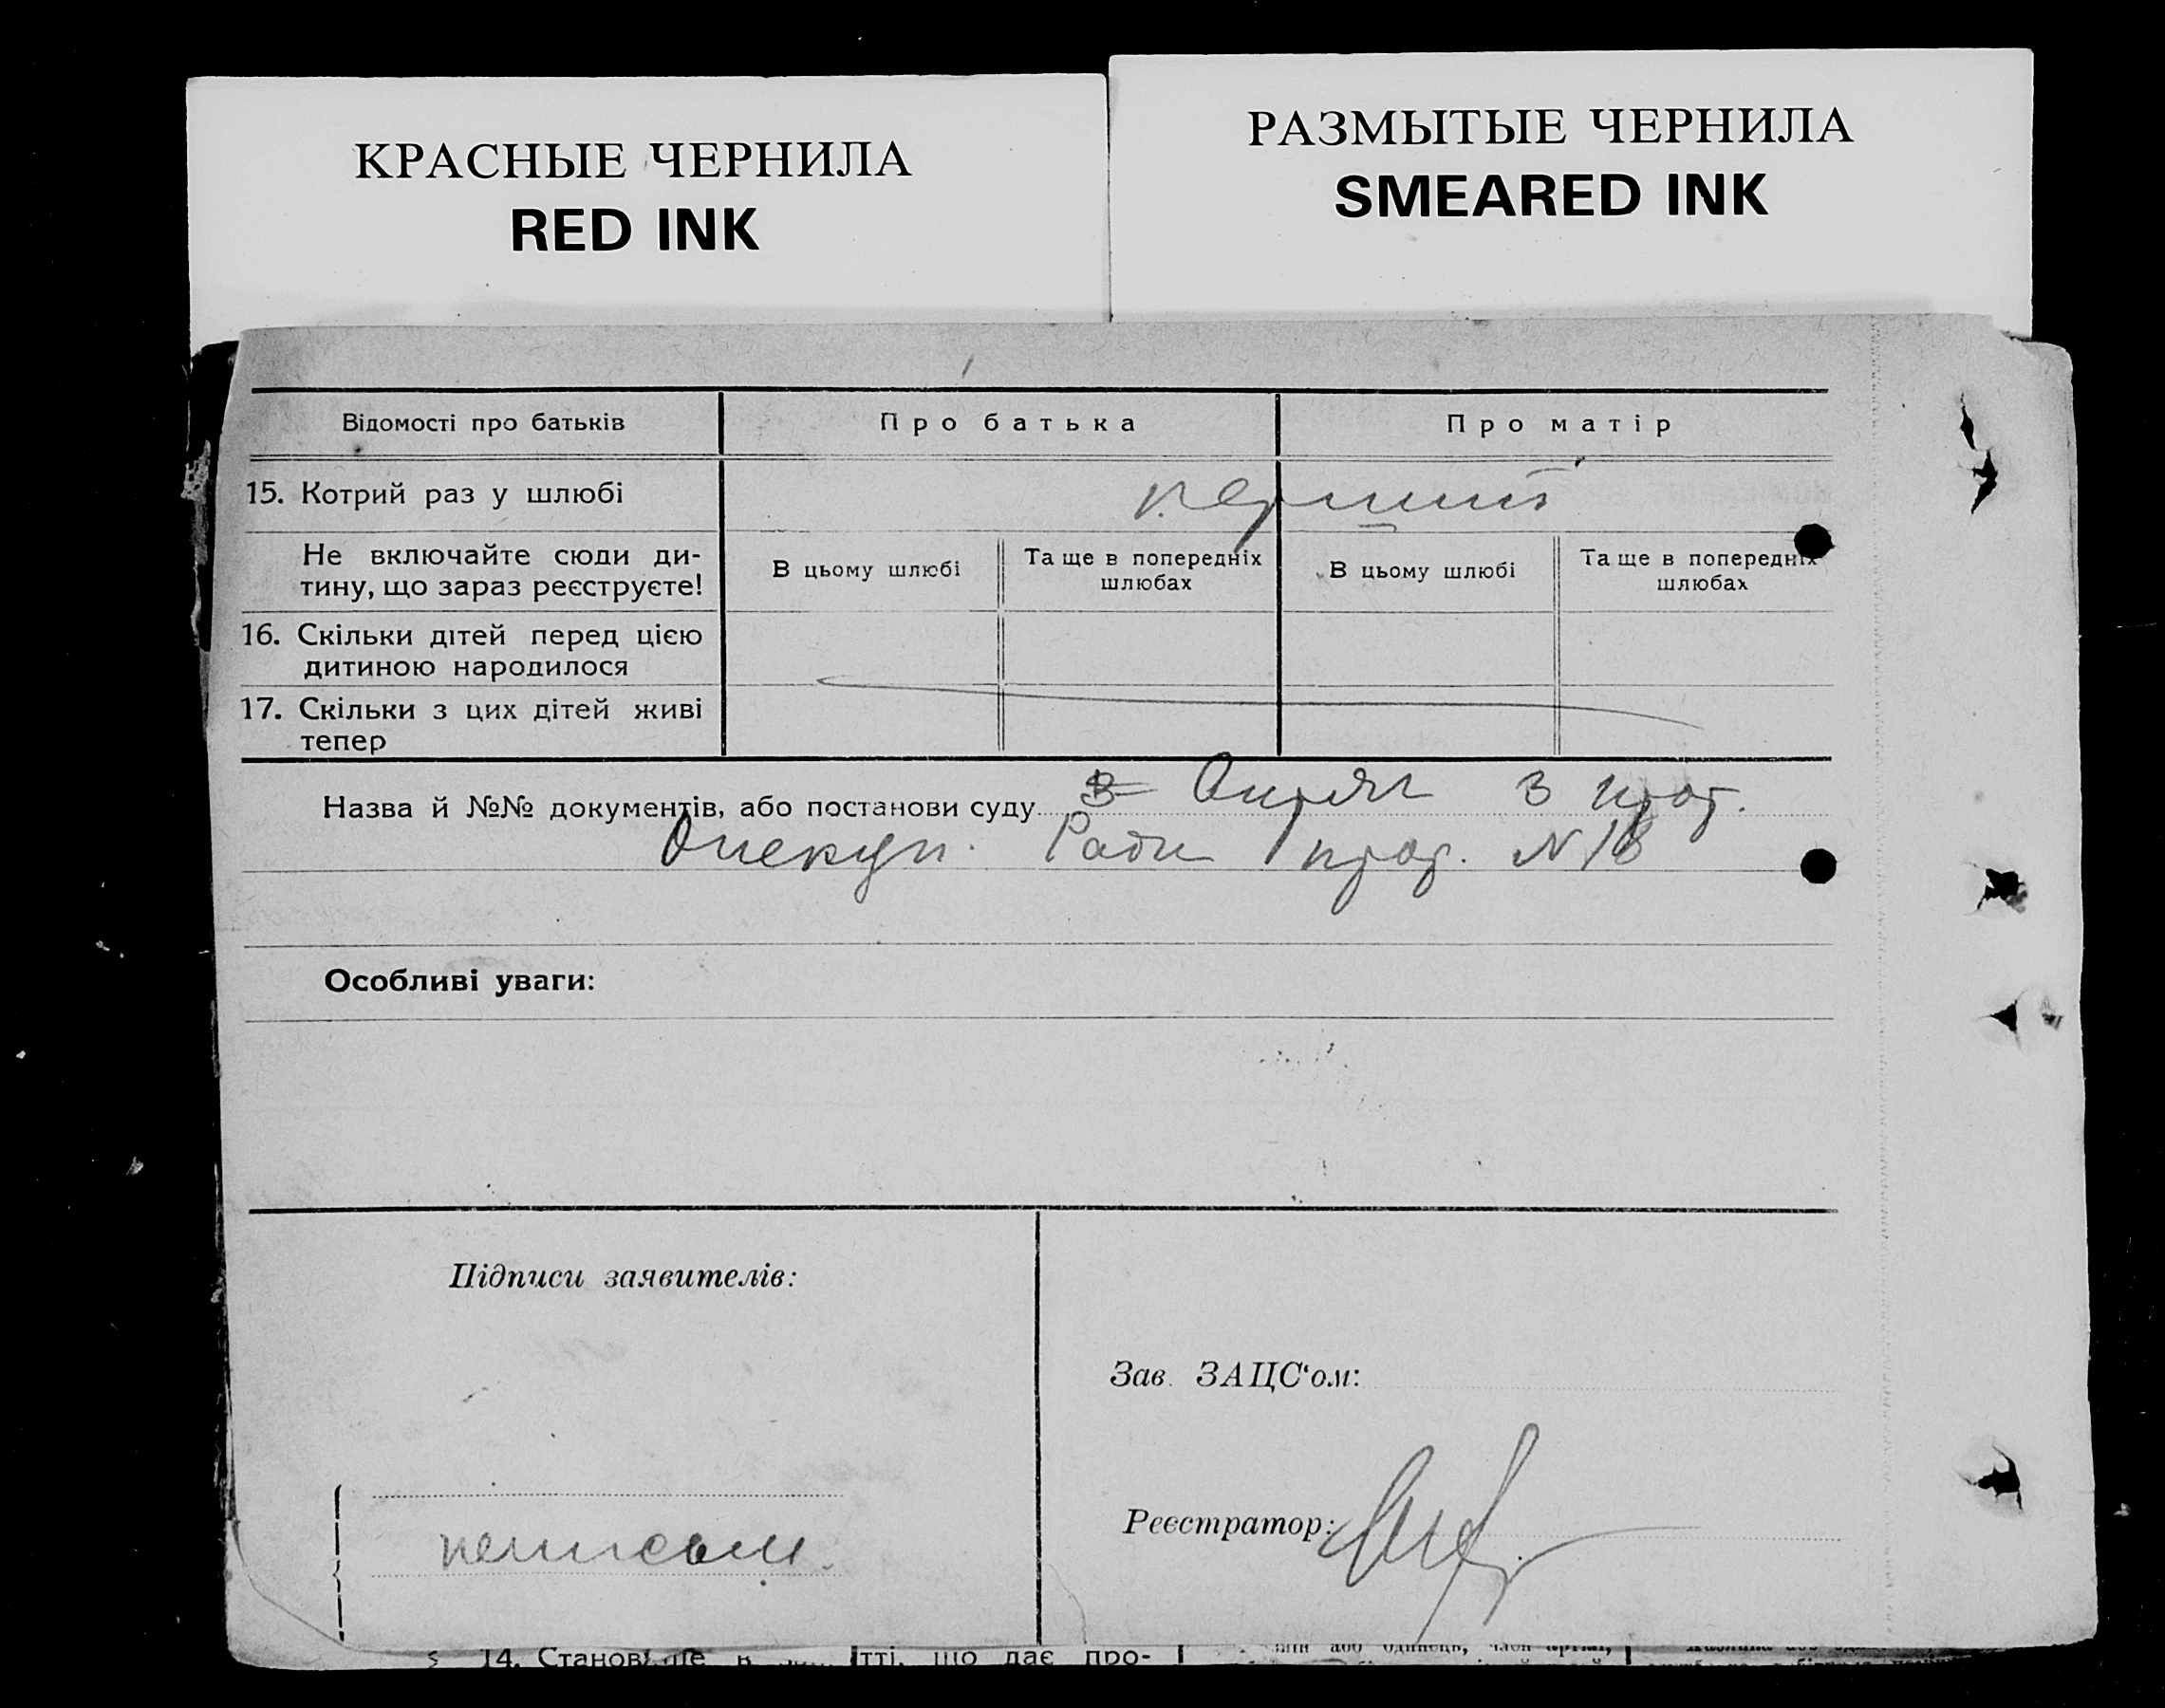 КРАСНЫЕ ЧЕРНИЛА
RED INK
РАЗМЫТЫЕ ЧЕРНИЛА
SMEARED INK
Відомості про батьків
Про батька
Про матір
15. Котрий раз у шлюбі
перший
Не включайте сюди ди-
тину, що зараз реєструєте!
В цьому шлюбі
Та ще в попередніх
шлюбах
В цьому шлюбі
Та ще в попередніх
шлюбах
16. Скільки дітей перед цією
дитиною народилося
17. Скільки з цих дітей живі
тепер
Назва й №№ документів, або постанови суду Витяг з прот.
Опекун. Ради прот. N 18
Особливі уваги:
Підписи заявителів:
Зав. ЗАЦС‘ом:
Реєстратор:
14. Станов ще в тті, що дає про-